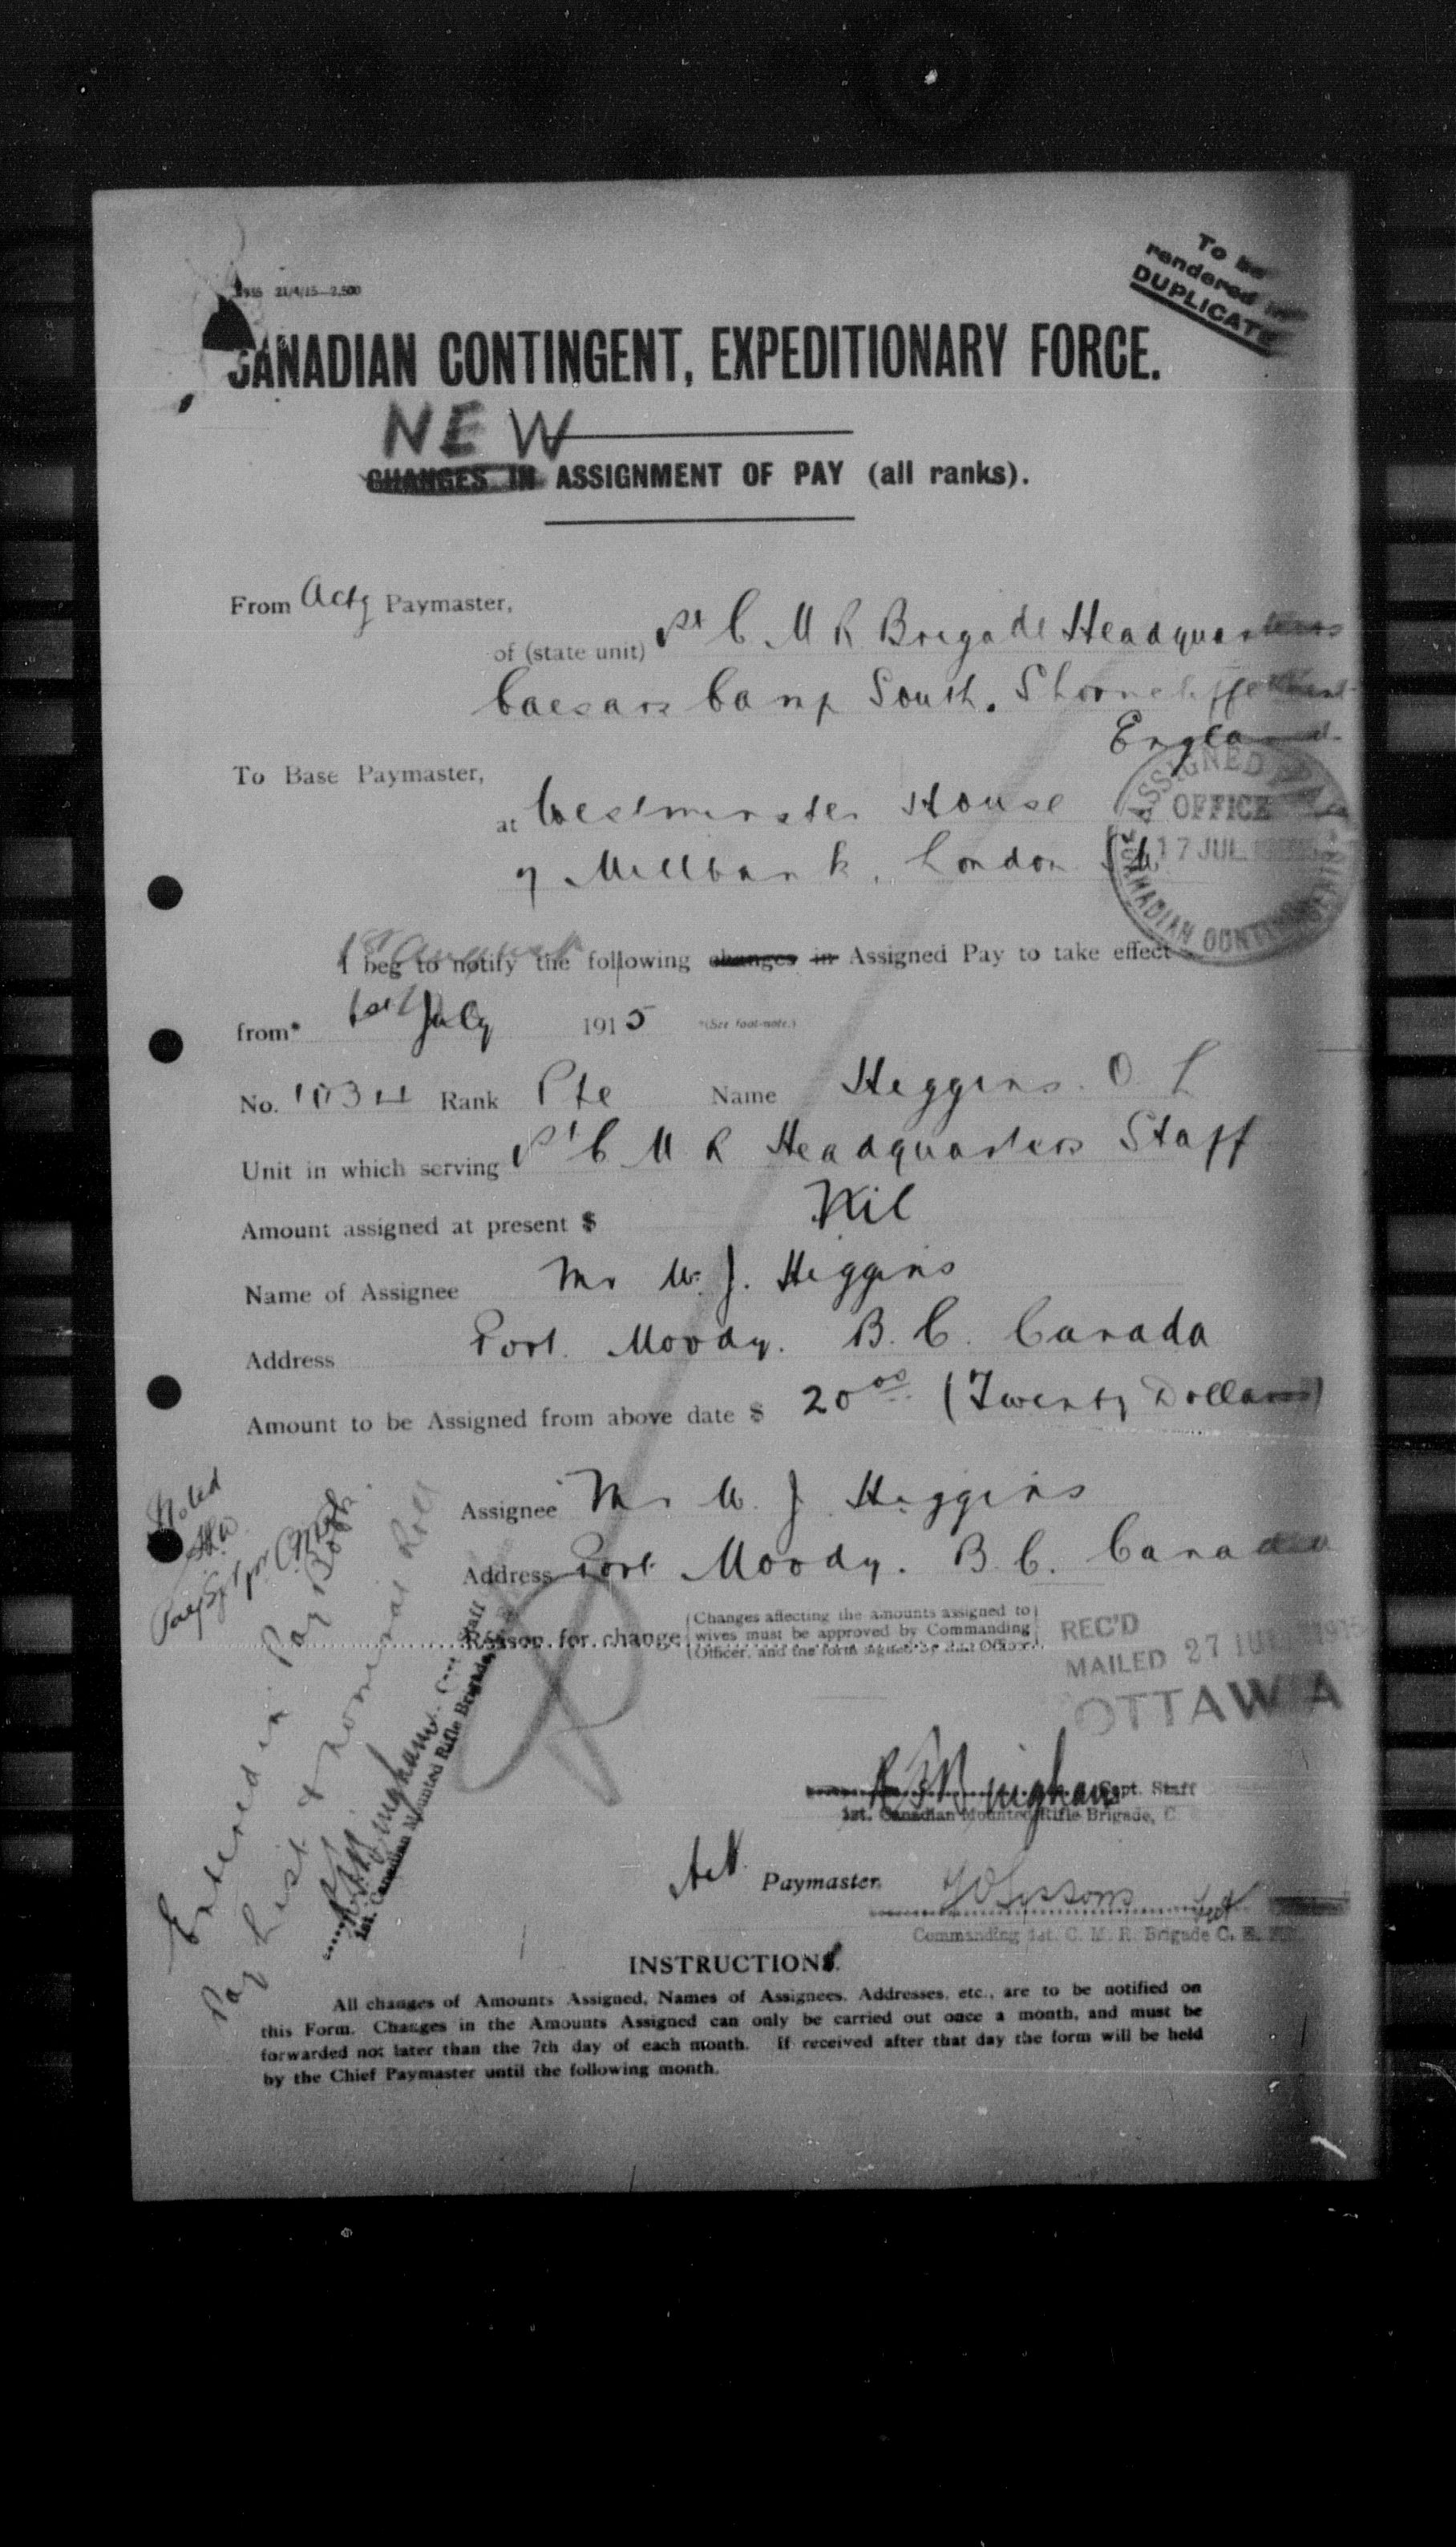 21/4/15—2,500
To be
rendered in
DUPLICATE
CANADIAN CONTINGENT, EXPEDITIONARY FORCE.
NEW
CHANGES IN ASSIGNMENT OF PAY (all ranks).
From Actg Paymaster,
of (state unit) 1st C M R Brigade Headquarters
Caesars Camp South. Shorncliffe Kent
England
To Base Paymaster,
at Westminster House
7 Millbank, London S W
ASSIGNED PAY
OFFICE
17 JUL
CANADIAN CONTINGENTS
1st August
I beg to notify the following changes in Assigned Pay to take effect
from* 1st July 1915 *(See foot-note.)
No. Rank Pte Name Higgins. O. L
Unit in which serving 1st C M R Headquarters Staff
Amount assigned at present $ Nil
Name of Assignee Mr W. J. Higgins
Address Port Moody. B. C. Canada
Amount to be Assigned from above date $ 20 00 (Twenty Dollars)
Assignee Mr W. J. Higgins
Address Port Moody. B. C. Canada
Reason for change (Changes affecting the amounts assigned to
wives must be approved by Commanding
Officer, and the form signed by that Officer).
REC'D
MAILED 27 1915
OTTAWA
Noted
Entered in Pay Book
Pay List & Nominal Roll
Capt. Staff
1st. Canadian Mounted Rifle Brigade
Bingham Capt. Staff
1st. Canadian Mounted Rifle Brigade, C
Act Paymaster. Sissons Lieut
Commanding 1st. C. M. R. Brigade C. E.
INSTRUCTIONS.
All changes of Amounts Assigned, Names of Assignees, Addresses, etc., are to be notified on
this Form. Changes in the Amounts Assigned can only be carried out once a month, and must be
forwarded not later than the 7th day of each month. If received after that day the form will be held
by the Chief Paymaster until the following month.